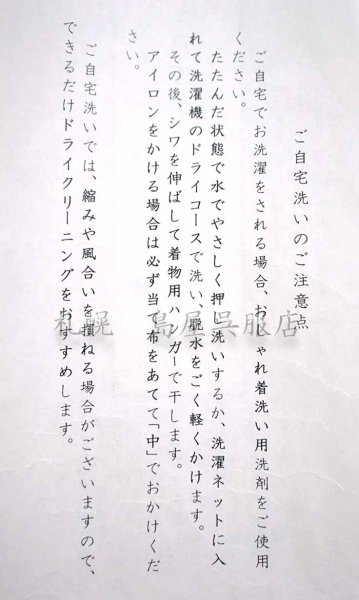 ご自宅洗いのご注意点
ご自宅でお洗濯をされる場合、おしゃれ着洗い用洗剤をご使用
ください。
たたんだ状態で水でやさしく押し洗いするか、洗濯ネットに入
れて洗濯機のドライコースで洗い、脱水をごく軽くかけます。
その後、シワを伸ばして着物用ハンガーで干します。
アイロンをかける場合は必ず当て布をあてて「中」でおかけくだ
さい。
ご自宅洗いでは、縮みや風合いを損ねる場合がございますので、
できるだけドライクリーニングをおすすめします。
札幌 島屋呉服店